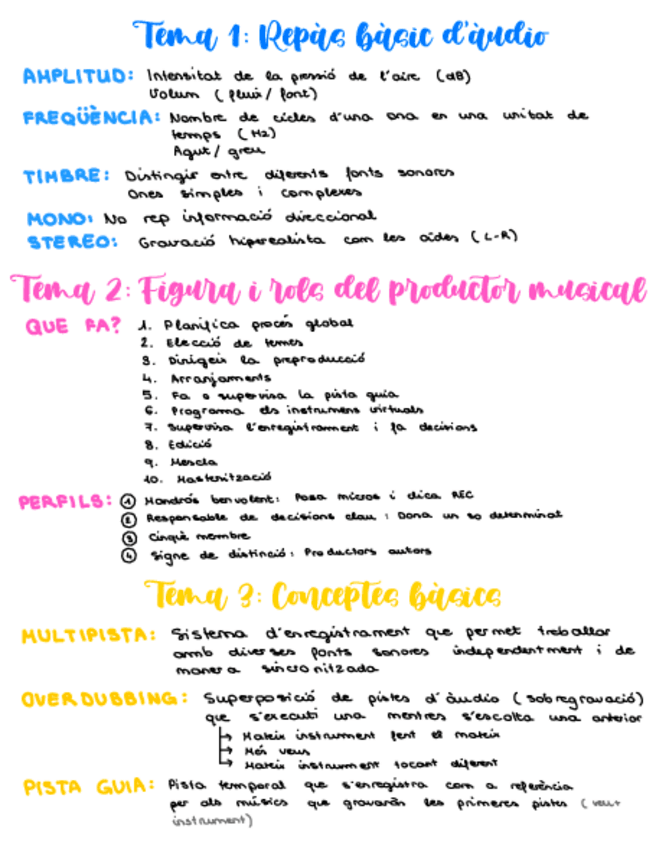 Tema 1: Repàs bàsic d'àudio
AMPLITUD: Intensitat de la pressió de l'aire (dB)
Volum (fluix/font)
FREQÜÈNCIA: Nombre de cicles d'una ona en una unitat de
temps (Hz)
Agut/greu
TIMBRE: Distingir entre diferents fonts sonores
Ones simples i complexes
MONO: No rep informació direccional
STEREO: Gravació hiperealista com les oïdes (L-R)
Tema 2: Figura i rols del productor musical
QUE FA? 1. Planifica procés global
2. Elecció de temes
3. Dirigeix la preproducció
4. Arranjaments
5. Fa o supervisa la pista guia
6. Programa els instruments virtuals
7. Supervisa l'enregistrament i fa decisions
8. Edició
9. Mescla
10. Masterització
PERFILS: 1 Mandrós benvolent: Posa micros i clica REC
2 Responsable de decisions clau: Dona un so determinat
3 Cinquè membre
4 Signe de distinció: Productors autors
Tema 3: Conceptes bàsics
MULTIPISTA: Sistema d'enregistrament que permet treballar
amb diverses fonts sonores independentment i de
manera sincronitzada
OVERDUBBING: Superposició de pistes d'àudio (sobregravació)
que s'executi una mentres s'escolta una anterior
↳ Mateix instrument fent el mateix
↳ Més veus
↳ Mateix instrument tocant diferent
PISTA GUIA: Pista temporal que s'enregistra com a referència
per als músics que gravaràn les primeres pistes (veu+
instrument)